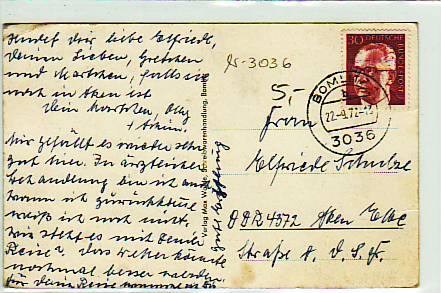 sendet Dir, liebe Elfriede,
Deinen Lieben, Gretchen
und Martchen, falls sie
noch in Aken ist
Dein
Mir gefällt es
gut hier. In ärztlicher
Behandlung bin ich auch
wann ich zurückkehre
weiß ich noch nicht.
wie steht es mit Deiner
Reise? Das Wetter könnte
nochmal besser werden.
für Deine Reise
Verlag Max
Schreibwarenhandlung,
Nr-3036
5,-
30 DEUTSCHE BUNDESPOST
BOMLITZ
22.-9.72-12
3036
Frau
Elfriede Schulze
DDR 4372 Aken Elbe
Straße d. D. S. F.